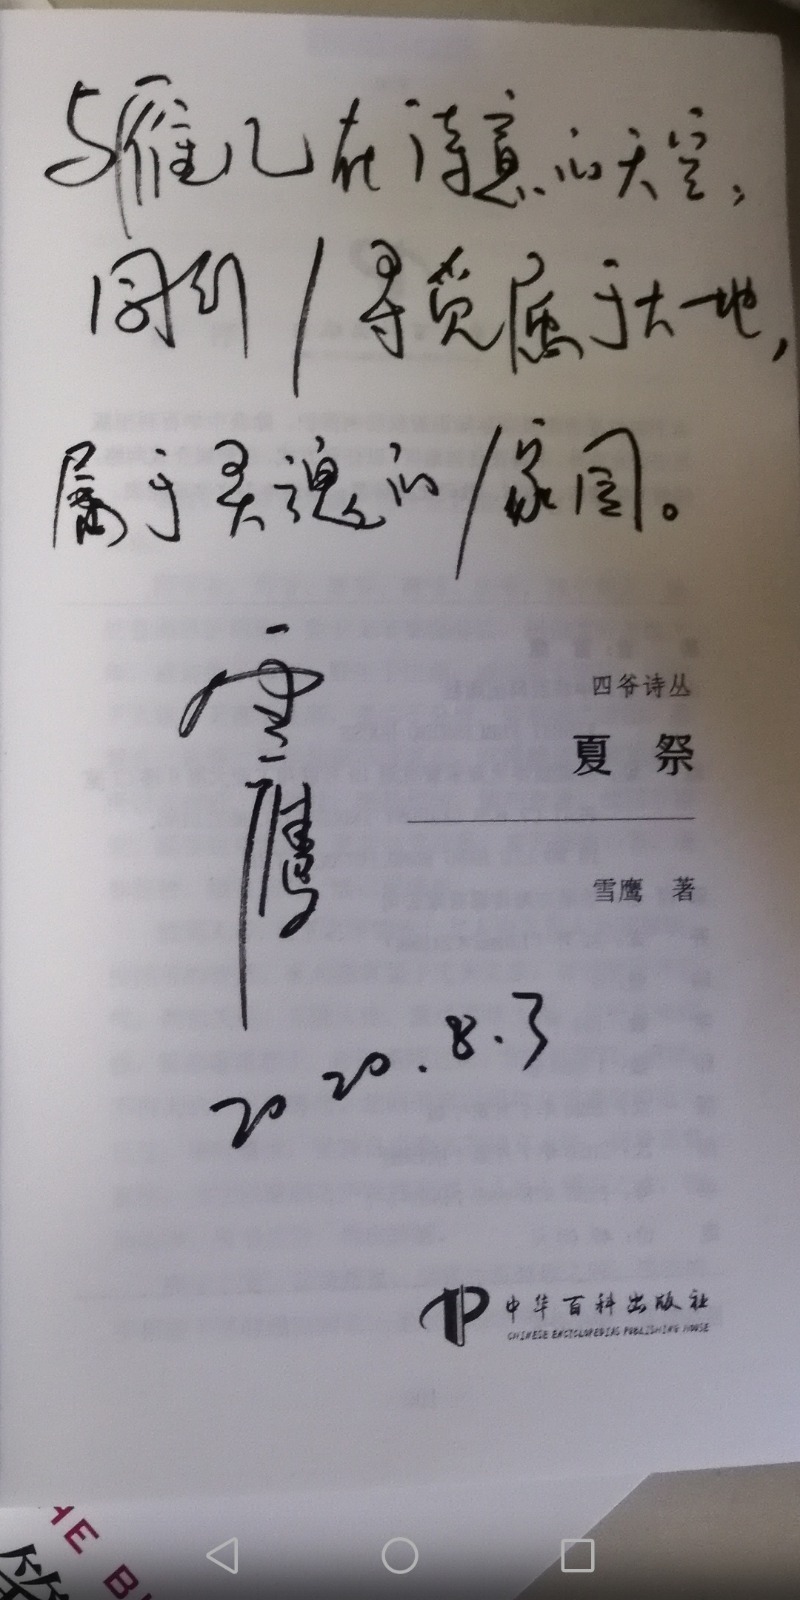 与雁儿在诗意的天空，
同引 / 寻觅属于大地，
属于灵魂的 / 家园。
雪鹰
2020.8.3
四爷诗丛
夏 祭
雪鹰 著
中华百科出版社
CHINESE ENCYCLOPEDIAS PUBLISHING HOUSE